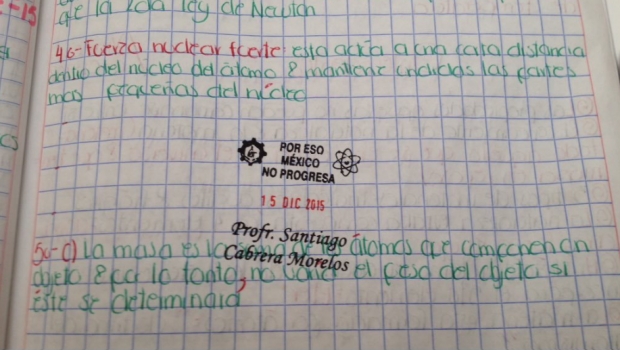 de la 2da ley de Newton
46-Fuerza nuclear fuerte esta actúa a una cara distancia
dentro del núcleo del átomo & mantiene unidas las partes
mas pequeñas del núcleo
POR ESO
MÉXICO
NO PROGRESA
15 DIC 2015
Profr. Santiago
Cabrera Morelos
la masa es átomos que componen un
objeto & por lo tanto, no el peso del objeto si
éste se determinaid